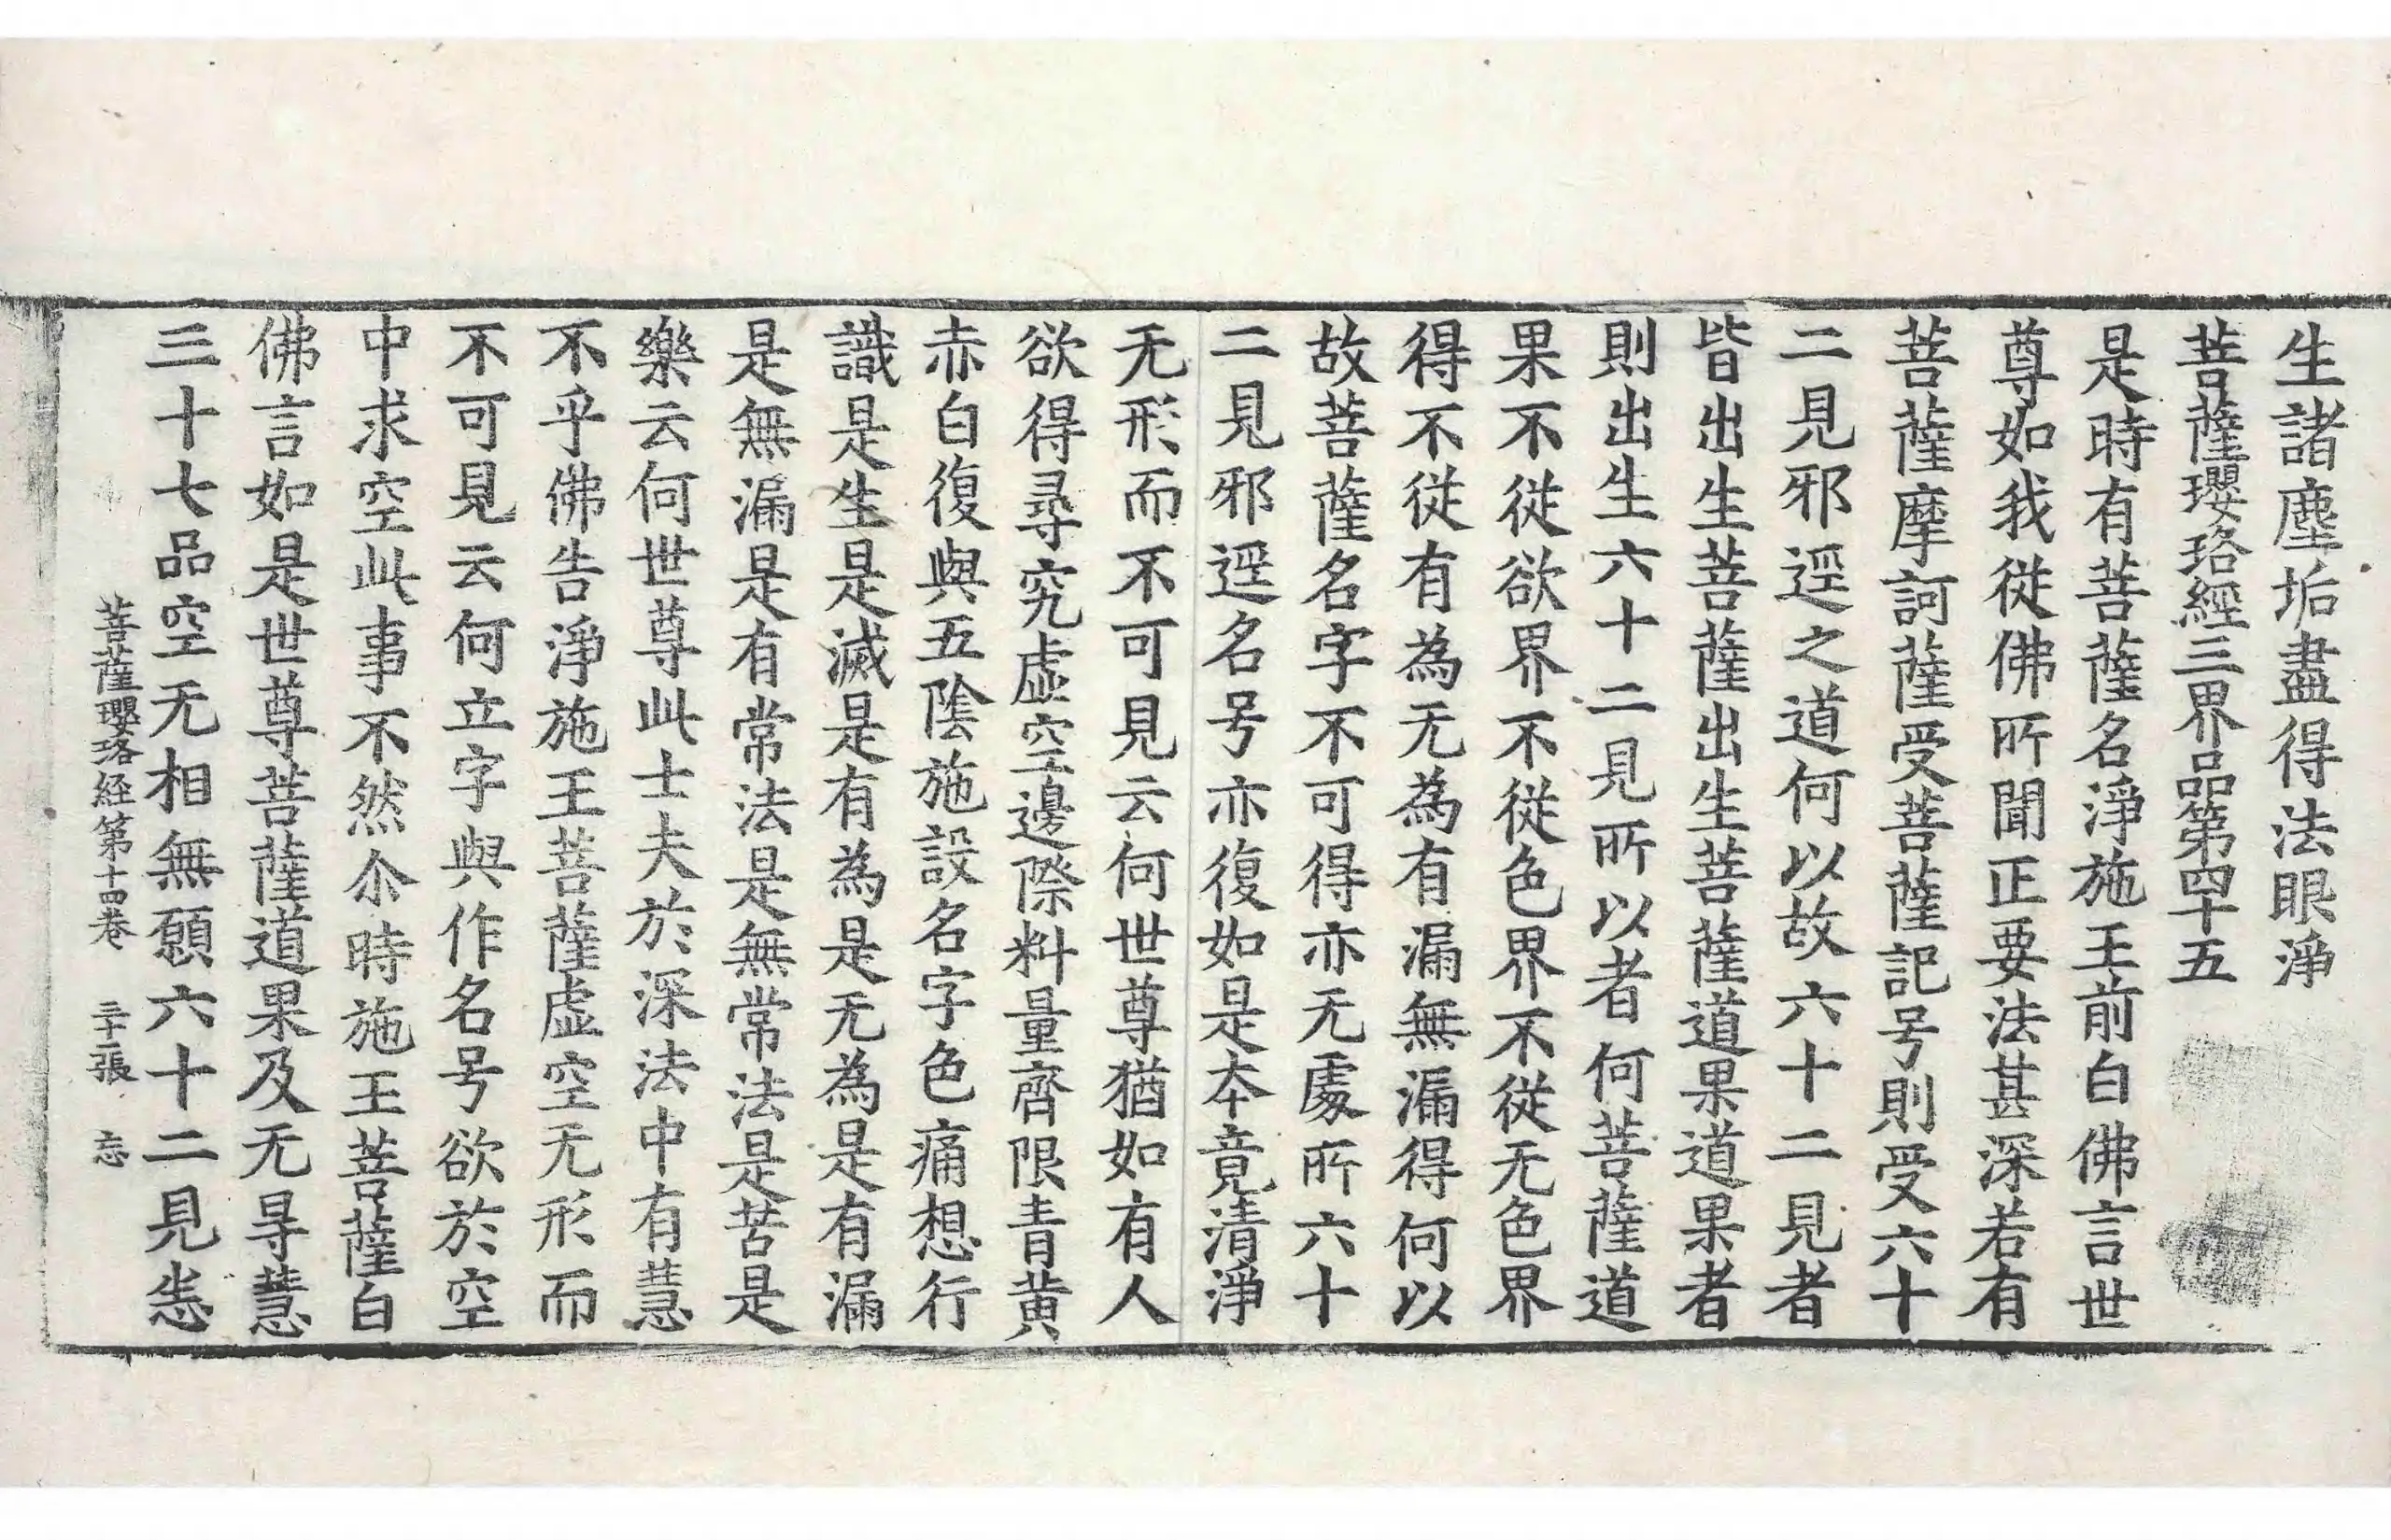 生諸塵垢盡得法眼淨
菩薩瓔珞經三界品第四十五
是時有菩薩名淨施王前白佛言世
尊如我從佛所聞正要法甚深若有
菩薩摩訶薩受菩薩記号則受六十
二見邪逕之道何以故六十二見者
皆出生菩薩出生菩薩道果道果者
則出生六十二見所以者何菩薩道
果不從欲界不從色界不從无色界
得不從有為无為有漏無漏得何以
故菩薩名字不可得亦无處所六十
二見邪逕名号亦復如是本竟清淨
无形而不可見云何世尊猶如有人
欲得尋究虛空邊際料量齊限青黃
赤白復與五陰施設名字色痛想行
識是生是滅是有為是无為是有漏
是無漏是有常法是無常法是苦是
樂云何世尊此士夫於深法中有慧
不乎佛告淨施王菩薩虛空无形而
不可見云何立字與作名号欲於空
中求空此事不然尒時施王菩薩白
佛言如是世尊菩薩道果及无㝵慧
三十七品空无相無願六十二見恙
菩薩瓔珞経第十四卷 三十一張 忘